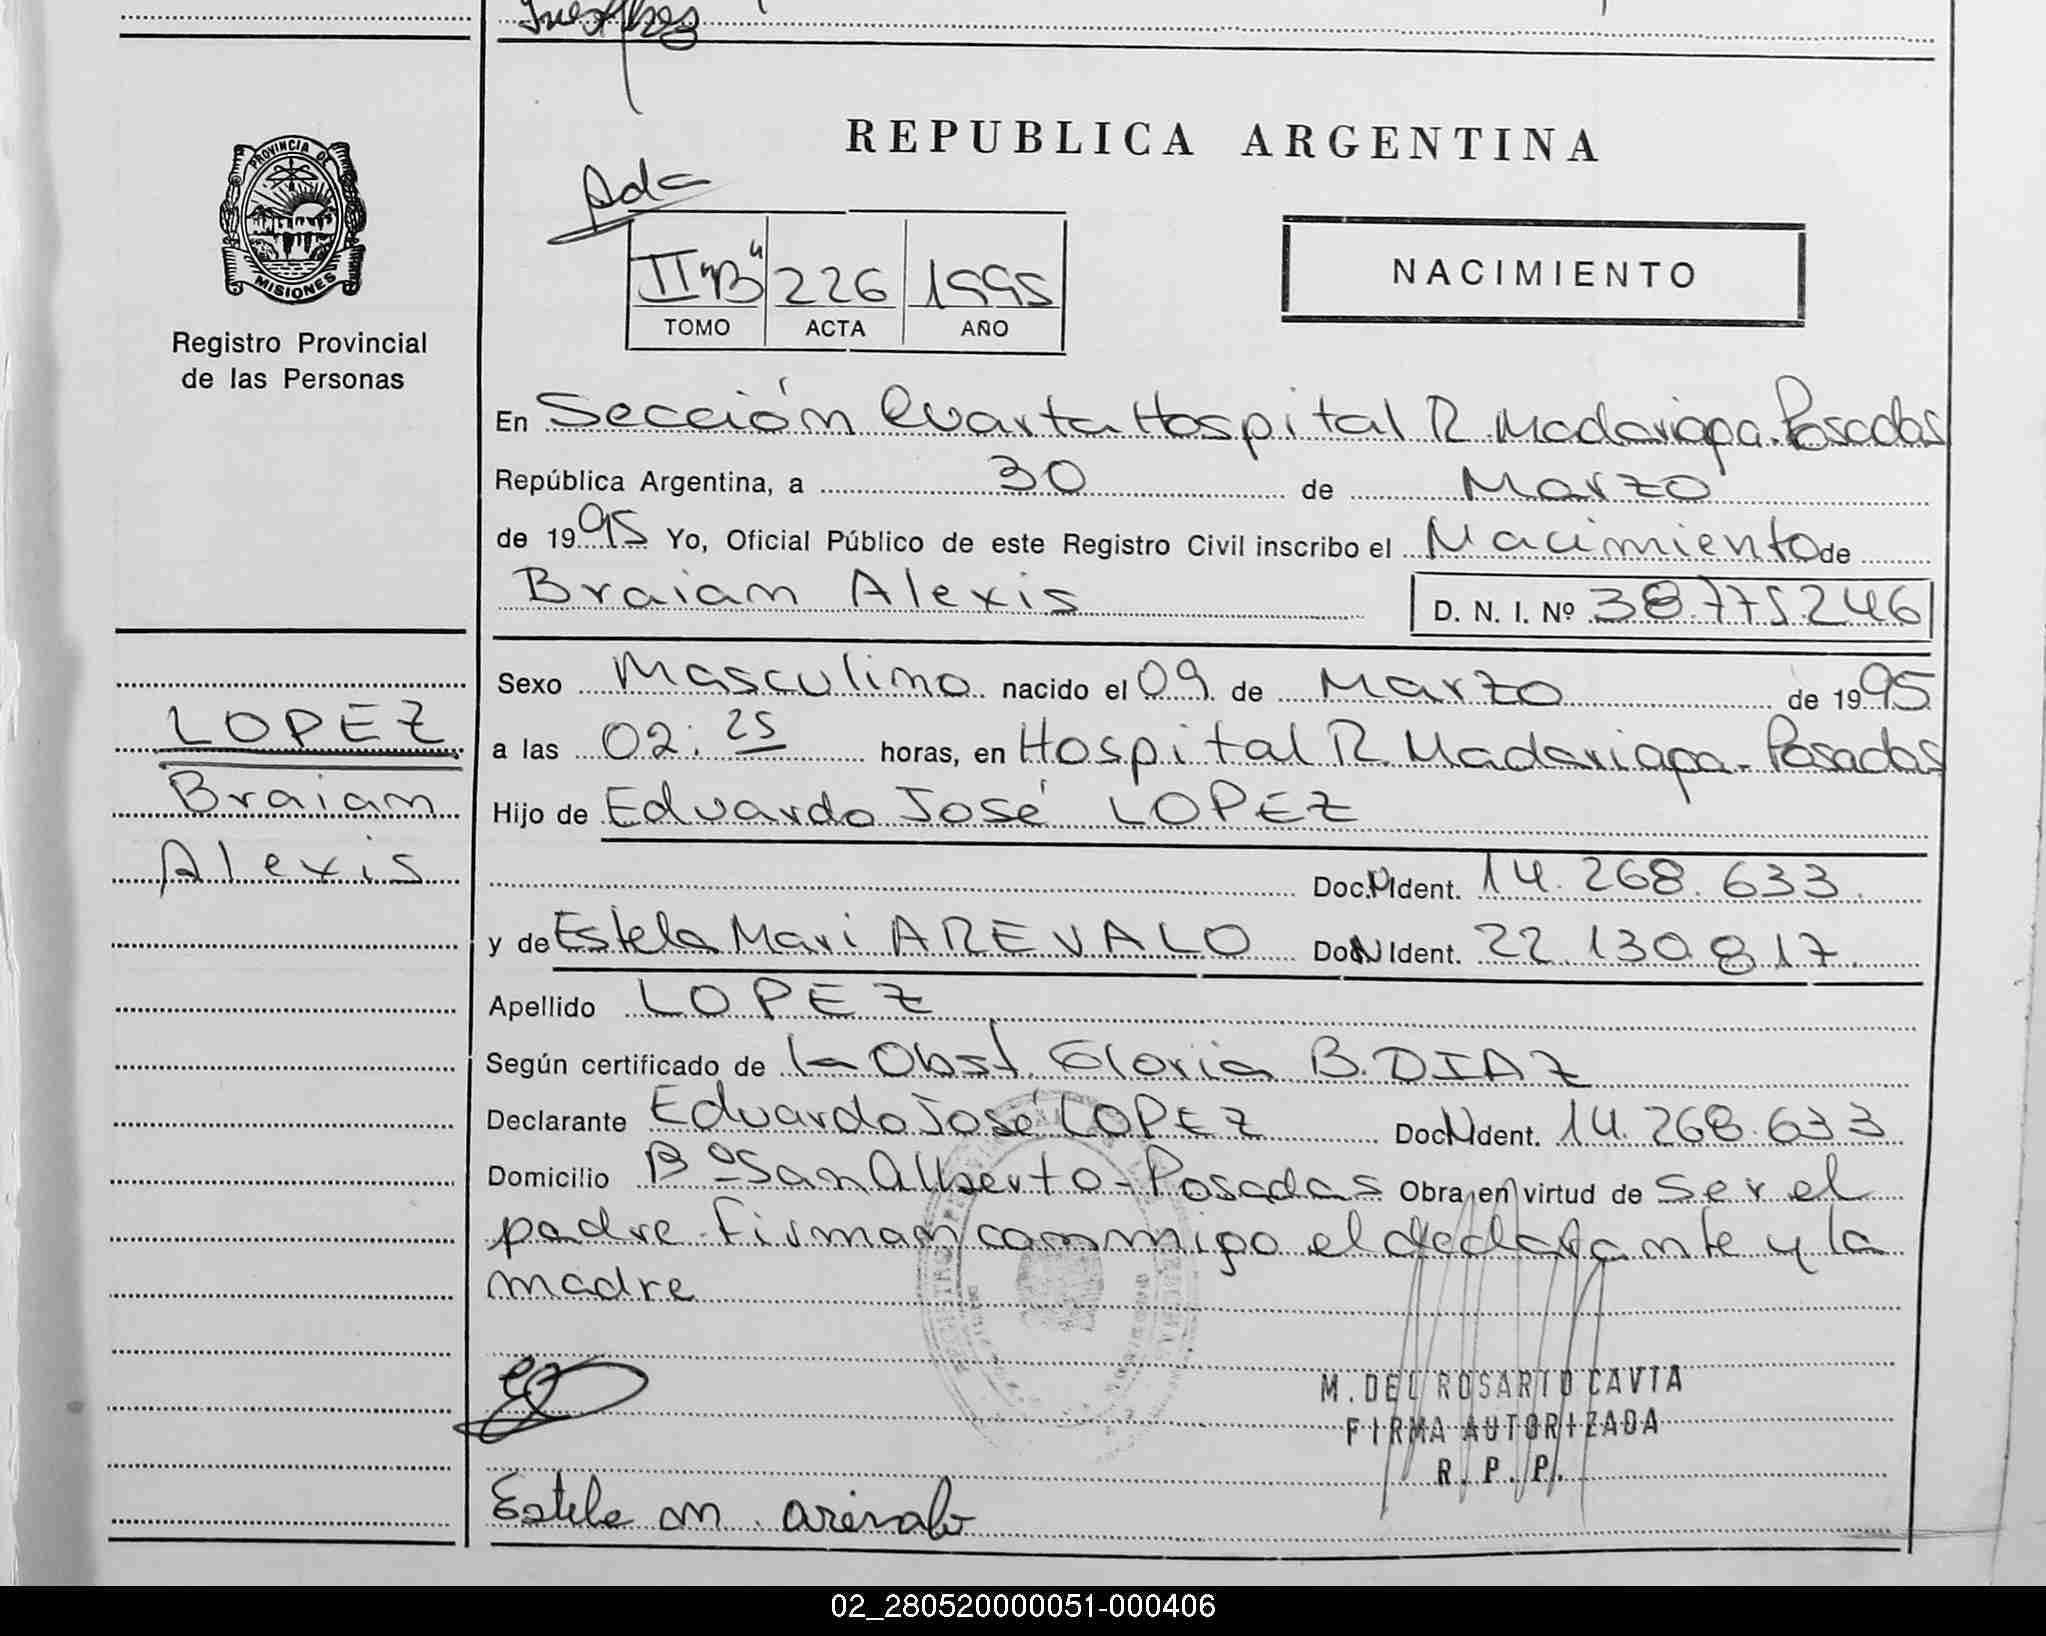 REPUBLICA ARGENTINA
PROVINCIA DE
MISIONES
Registro Provincial
de las Personas
Ada
II "B" 226 1995
TOMO ACTA AÑO
NACIMIENTO
En Sección Cuarta Hospital R. Madariaga. Posadas
República Argentina, a 30 de Marzo
de 1995 Yo, Oficial Público de este Registro Civil inscribo el Nacimiento de
Braian Alexis D. N. I. Nº 38.775.246
LOPEZ
Braian
Alexis
Sexo Masculino nacido el 09 de Marzo de 1995
a las 02:25 horas, en Hospital R. Madariaga - Posadas
Hijo de Eduardo José LOPEZ
Doc. Ident. 14.268.633.
y de Estela Mari AREVALO Doc. Ident. 22.130.817.
Apellido LOPEZ
Según certificado de la Obst. Gloria B. DIAZ
Declarante Eduardo José LOPEZ Doc. Ident. 14.268.633
Domicilio Bº San Alberto - Posadas Obra en virtud de ser el
padre. Firman conmigo el declarante y la
madre
M. DEL ROSARIO CAVIA
FIRMA AUTORIZADA
R. P. P.
Estela M. Arevalo
02_280520000051-000406